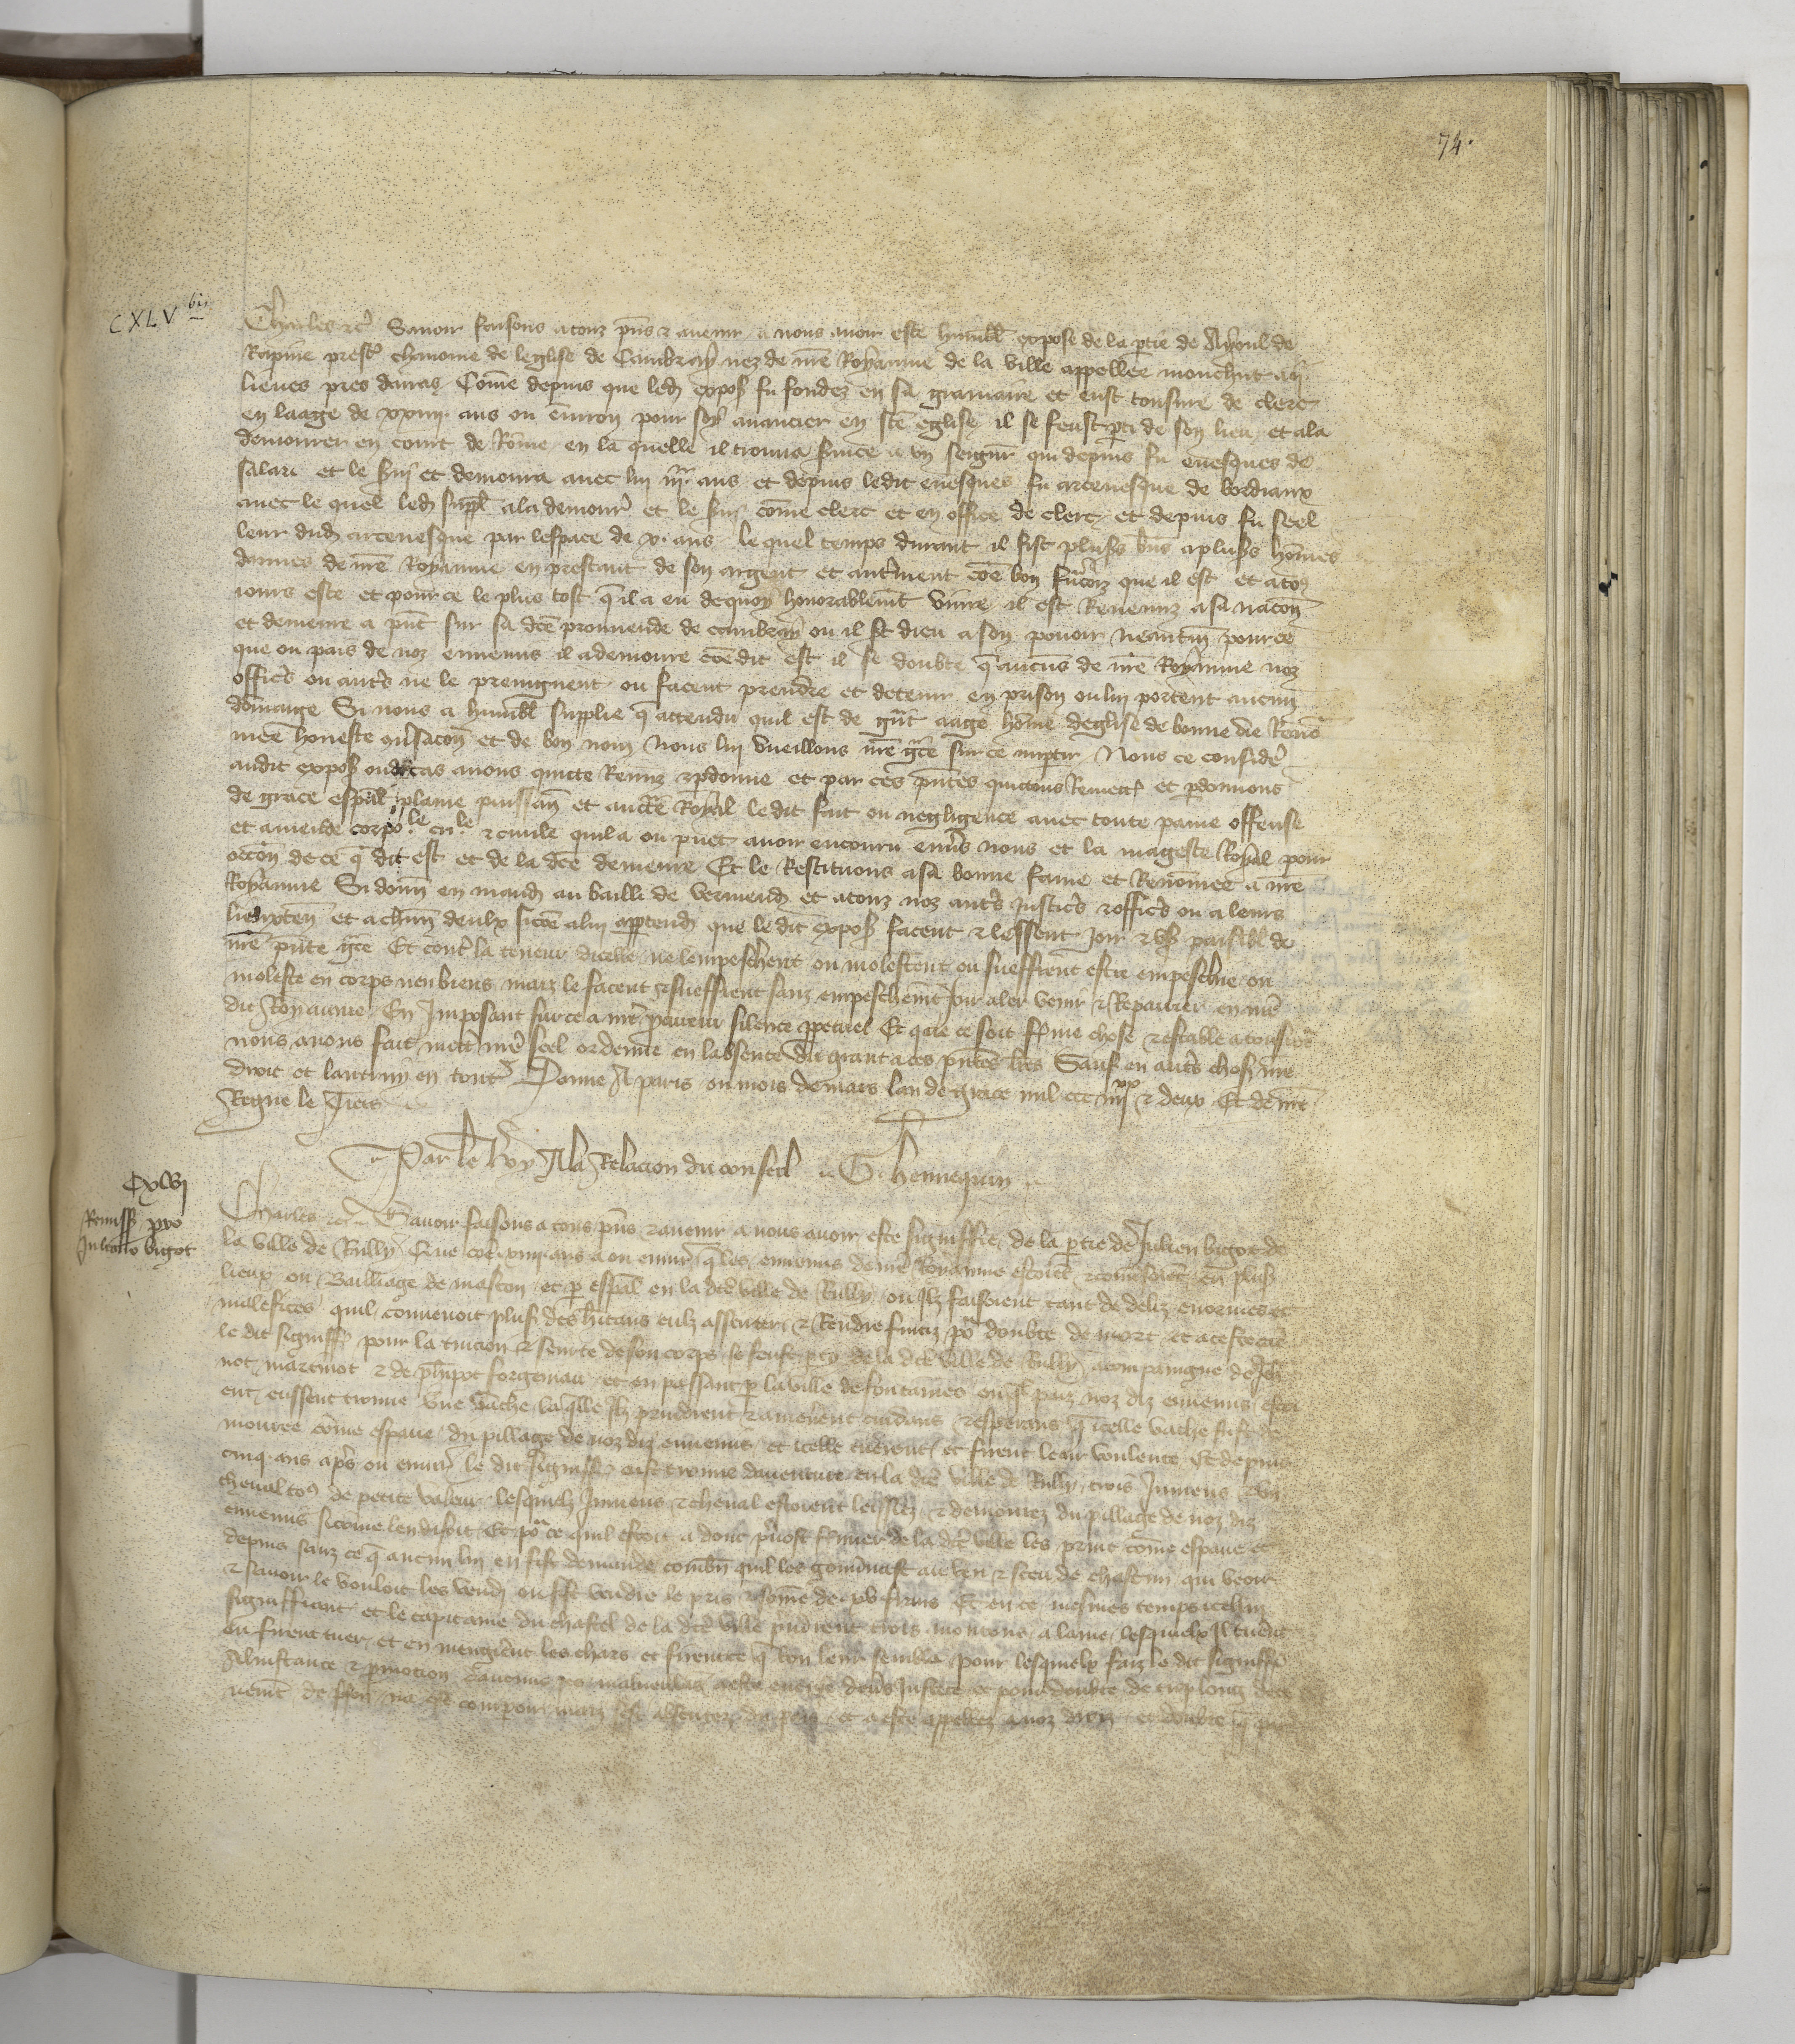 74.
CXLV bis
Charles etc. Savoir faisons a touz pns et avenir a nous avoir este humbl expose de la ptie de Aynoul de
Rapine prestre chanoine de leglise de Cambray nez de nre Royaume de la ville appellee monchut a
lieues pres darras Come depuis que led expos fu fondez en sa gramaire et eust tonsure de clerc
en laage de xxiiii ans ou environ pour soy avancier en ste eglise il se feust pti de son lieu et ala
demourer en court de Rome en la quelle il trouva svice a un seignr qui depuis fu evesques de
salari et le svi et demoura avec lui iiii ans et depuis ledit evesques fu arcevesque de bordiaux
avec le quel led suppl ala demourer et le svi come clerc et en office de clerc et depuis fu seel
leur dud arcevesque par lespace de x ans le quel temps durant il fist pluss bns a pluss homes
darmes de nre Royaume en prestant de son argent et autrement coe bon francois que il est et a tous
iours este et pour ce le plus tost qil a eu de quoy honorablemt vivre il est Revenuz a sa nacon
et demeure a pnt sur sa dce prouvende de cambray ou il st dieu a son povoir neantm pource
que ou pais de noz ennemis il a demoure coe dit est il se doubte q aucuns de nre Royaume noz
offics ou auts ne le preingnent ou facent prendre et detenir en prison ou lui portent aucun
domage Si nous a humbl supplie q attendu quil est de gnt aage home deglise de bonne vie Reno
mee honeste conversacon et de bon nom Nous lui vueillons nre gce sur ce imptir Nous ce consider
audit expos ou dit cas avons quicte Remis et pdonne et par ces pntes quictons Remett et pdonnons
de grace espal plaine puissan et auctte Royal le dit fait ou negligence avec toute paine offense
et amende corpole cri.le et civile quil a ou puet avoir encouru envs nous et la mageste Royal pour
occon de ce q dit est et de la dce demeure Et le Restituons a sa bonne fame et Renomee a nre
Royaume Si donn en mand au bailli de vermend et a touz noz auts Justics et offics ou a leurs
lieuxten et a chun deulx sicoe a lui apptend que le dit expos facent et lessent joir et us paisibl de
nre pnte gce Et contr la teneur dicelle ne lempeschent ou molestent ou sueffrent estre empesche ou
moleste en corps nen biens maiz le facent et sueffrent sanz empeschemt joir aler venir et Repairer en nre
dit Royaume En Imposant sur ce a nre pcureur silence ppetuel Et que ce soit ferme chose et estable a tousiours
nous avons fait mettre nre seel ordenne en labsence du grant a ces pntes lres Sauf en auts chos nre
droit et lautruy en tout Donne A paris ou mois de mars lan de grace mil ccc iiii xx et deux Et de nre
Regne le Tiers
Par le Roy A la Relacion du conseil G. hennequin
CXLVI
Remiss pro
Juliano bigot
Charles etc. Savoir faisons a tous pns et avenir a nous avoir este signiffie de la ptie de Julien bigot de
la ville de Rully Que coe viii ans a ou envir q les ennemis de nre Royaume estoient en pluss
lieux ou Bailliage de mascon et p espal en la dce ville de Rully ou Ilz faisoient tant de deliz enormes et
malefices quil convenoit pluss des hitans eulz assenter et Rendre fuitiz por doubte de mort et a ceste cause
le dit signiff pour la tuicion et seurte de son corps se feust pty de la dce ville de Rully acompaignie de Jeh
not marcinot et de phlipot forgenau et en passant p la ville de fontaines ou q pais noz diz ennemis estoi
ent eussent trouve une vache la qlle Ilz prindrent et amenerent cuidans et esperans q icelle vache fust de
mouree come espave du pillage de noz diz ennemis et icelle tuerent et firent leur voulente Et depuis
cinq ans aps ou envir le dit signiff eust trouve daventure en la dce ville de Rully trois Jumens et un
cheval tos de petite valeur lesquelz Jumens et cheval estoient lessiez et demourez du pillage de noz diz
ennemis sicome len disoit Et por ce quil estoit a donc pvost fermier de la dce ville les print come espave et
depuis sanz ce q aucun lui en fist demande combn quil les gouvnast au veu et sceu de chascun qui veoir
et savoir le vouloit les vend ou fist vendre le pris et some de xv frans Et en ce mesmes temps icellui
signiffiant et le capitaine du chastel de la dce ville prindrent trois moutons a laine lesquelx Il tuerent
ou firent tuer et en mengierent les chars et firent ce q bon leur sembla pour lesquelx faiz le dit signiff
A linstance et pmocion daucuns ses malveullas a este envs Justice et pour doubte de trop long dete
nemt de pson na ose comparoir maiz sest absentez du pais et a este appellez a noz drois et doubte q